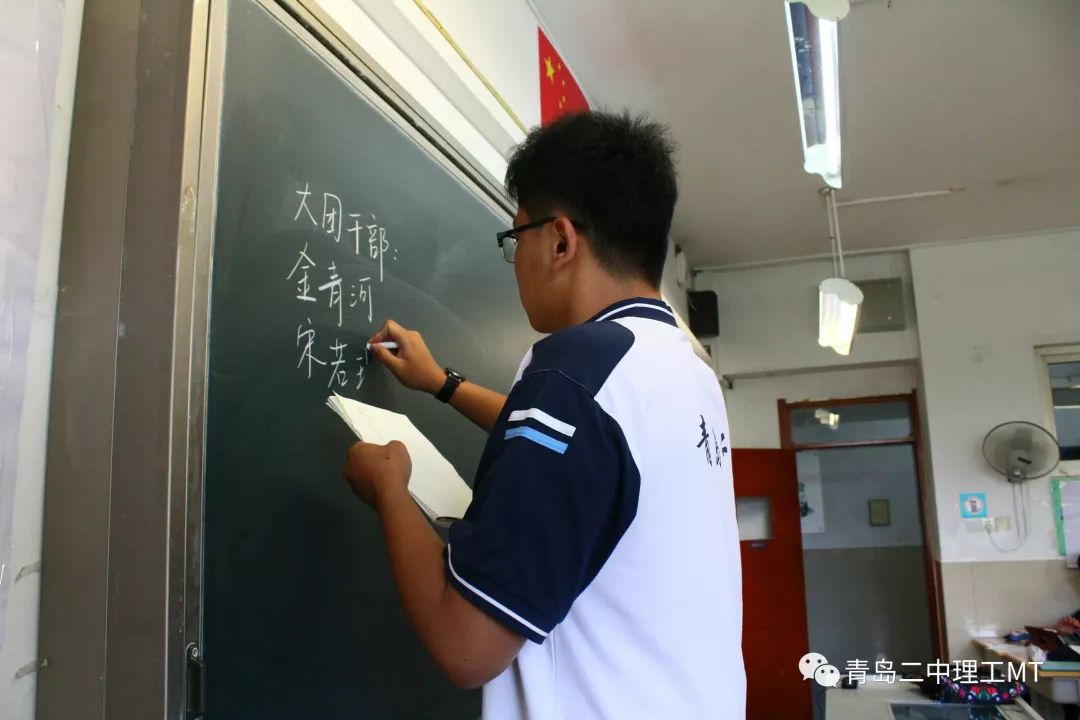 大团干部：
金青河
宋若
青岛二中理工MT